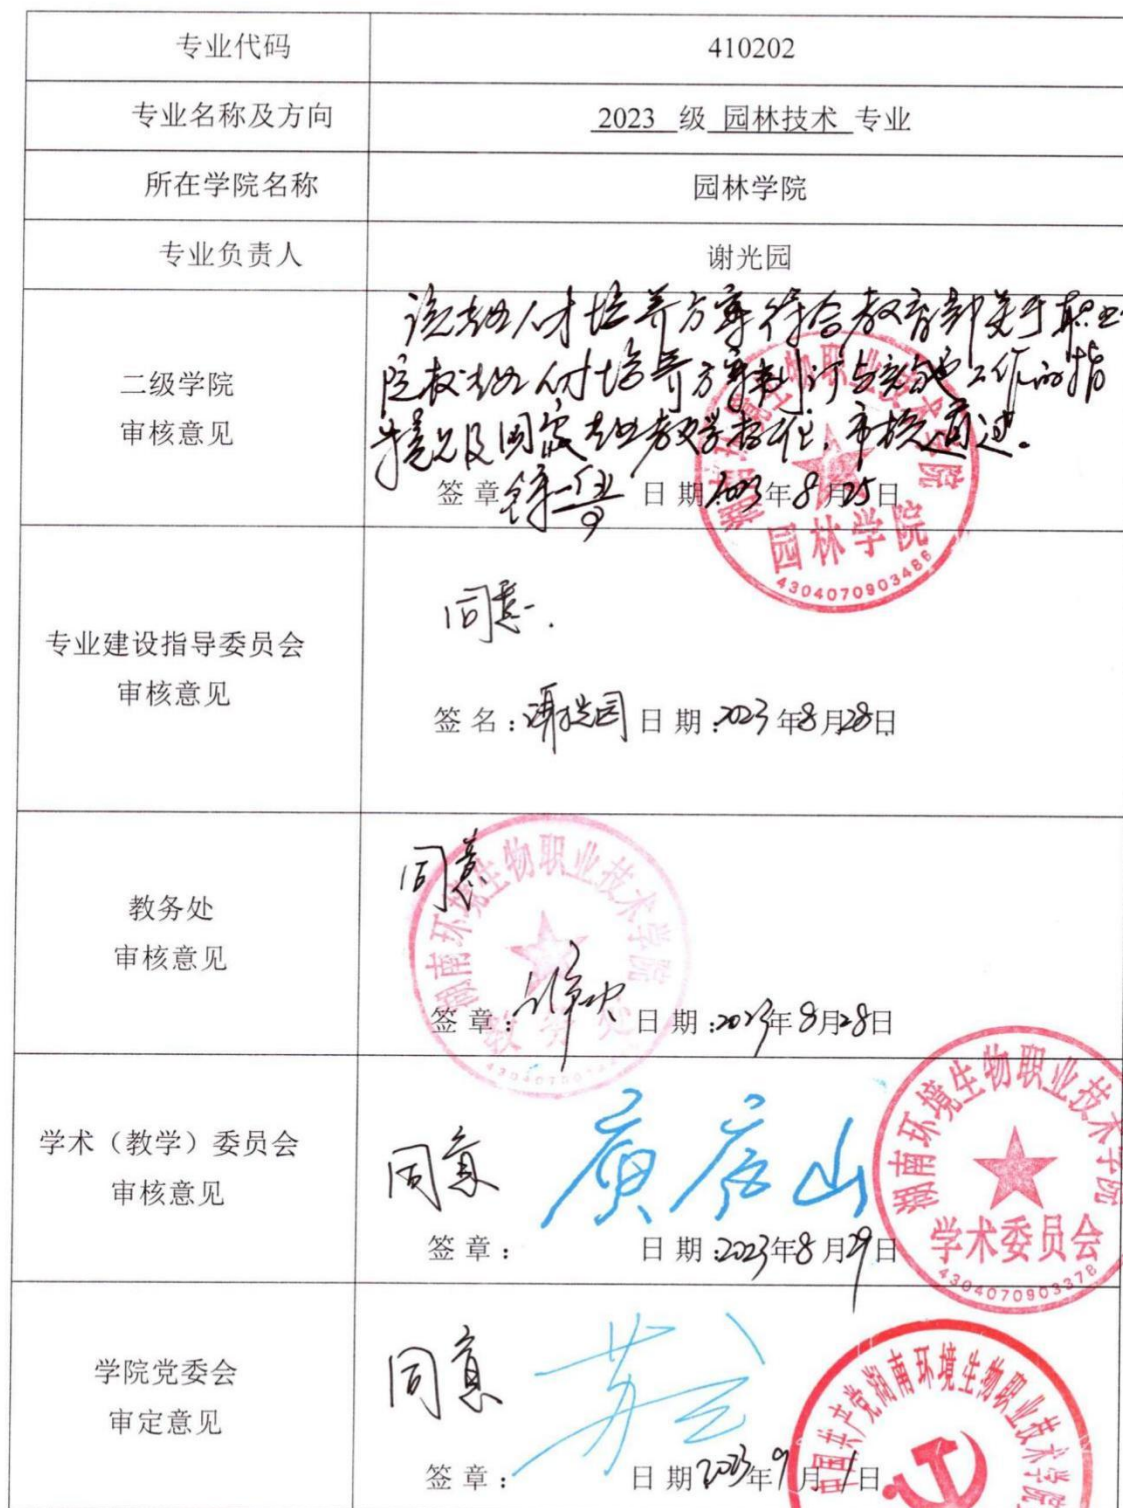 专业代码
410202
专业名称及方向
2023 级 园林技术 专业
所在学院名称
园林学院
专业负责人
谢光园
二级学院
审核意见
该专业人才培养方案符合教育部关于职业
院校专业人才培养方案制订与实施工作的指
导意见及国家专业教学标准,审核通过。
签章 日期 2023年8月25日
湖南环境生物职业技术学院
园林学院
4304070903486
专业建设指导委员会
审核意见
同意.
签名:谢光园 日期:2023年8月28日
教务处
审核意见
同意
签章: 日期:2023年8月28日
湖南环境生物职业技术学院
教务处
学术(教学)委员会
审核意见
同意
签章: 日期:2023年8月29日
湖南环境生物职业技术学院
学术委员会
4304070903378
学院党委会
审定意见
同意
签章: 日期 2023年9月1日
中国共产党湖南环境生物职业技术学院